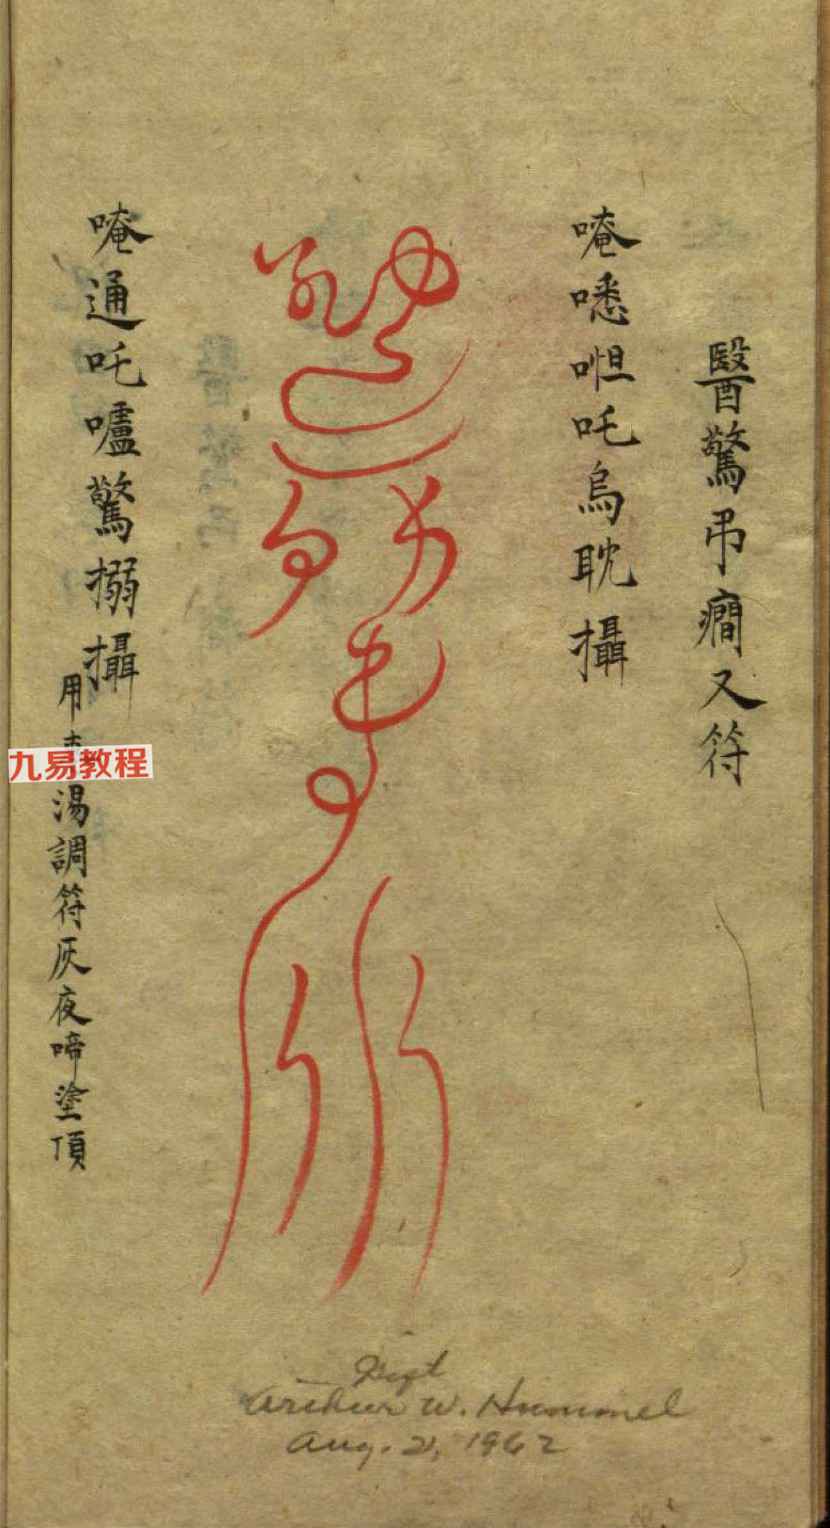 醫驚弔癇又符
唵㗭呾吒烏耽攝
唵通吒嚧驚搦攝
用
湯調符灰夜啼塗頂
九易教程
Gift
Arthur W. Hummel
Aug. 2, 1962